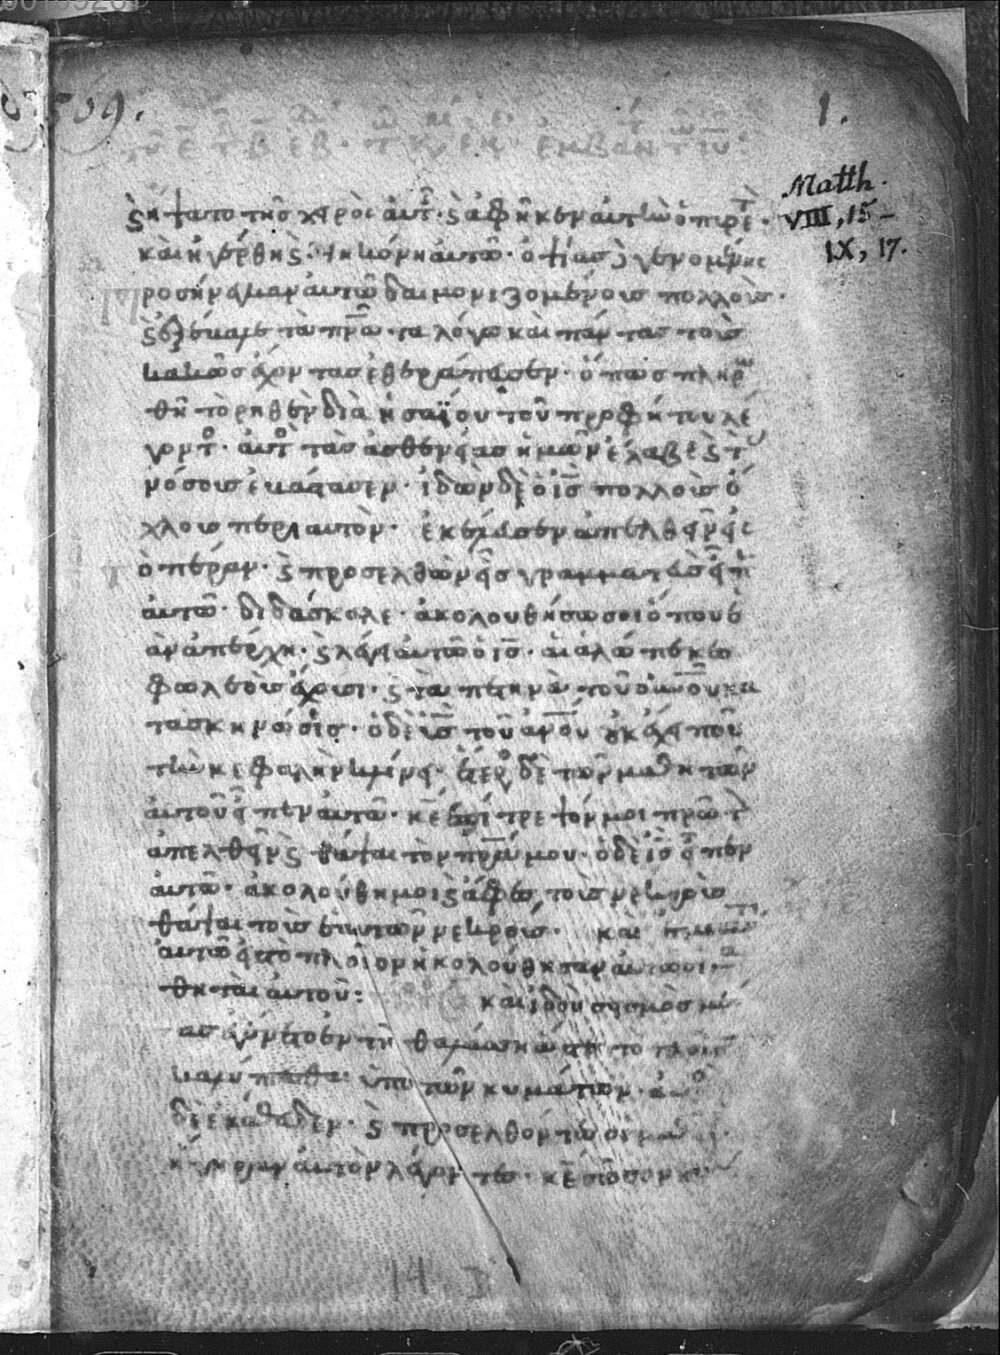 509. 1.
Matth.
VIII, 15–
IX, 17.
ϛ ἥψατο τῆς χειρὸς αὐτ· ϛ ἀφῆκεν αὐτὴν ὁ πυρετ·
καὶ ἠγέρθη ϛ διηκόνει αὐτῶ· ὀψίας γενομένης
προσήνεγκαν αὐτῶ δαιμονιζομένους πολλούς·
ϛ ἐξέβαλε τὰ πνα λόγω καὶ πάντας τοὺς
κακῶς ἔχοντας ἐθεράπευσεν· ὅπως πληρω
θῆ τὸ ρηθὲν διὰ ἡσαΐου τοῦ προφήτου λέ
γοντ· αὐτὸς τὰς ἀσθενείας ἡμῶν ἔλαβε ϛ τ
νόσους ἐβάστασεν· ἰδὼν δὲ ὁ ις πολλοὺς ὄ
χλους περὶ αὐτὸν· ἐκέλευσεν ἀπελθεῖν εἰς
τὸ πέραν· ϛ προσελθὼν εἷς γραμματεὺς εἶπ
αὐτῶ· διδάσκαλε· ἀκολουθήσω σοι ὅπου ἐ
ὰν ἀπέρχη· ϛ λέγει αὐτῶ ὁ ις· αἱ ἀλώπεκες
φωλεοὺς ἔχουσι· ϛ τὰ πετεινὰ τοῦ ουνου κα
τασκηνώσεις· ὁ δὲ υς τοῦ ανου οὐκ ἔχει ποῦ
τὴν κεφαλὴν κλίνει· ἕτερος δὲ τῶν μαθητῶν
αὐτοῦ εἶπεν αὐτῶ· κε ἐπίτρεψόν μοι πρῶτ
ἀπελθεῖν ϛ θάψαι τὸν πρα μου· ὁ δὲ ις εἶπεν
αὐτῶ· ἀκολούθει μοι ϛ ἄφες τοὺς νεκροὺς
θάψαι τοὺς ἑαυτῶν νεκρούς· καὶ
αὐτῶ εἰς τὸ πλοῖον ἠκολούθησαν αὐτῶ οι μα
θηταὶ αὐτοῦ: καὶ ἰδοὺ σεισμὸς μέ
γας ἐγένετο ἐν τῆ θαλάσση ὥστε τὸ πλοῖον
καλύπτεσθαι ὑπὸ τῶν κυμάτων· αὐτὸς
δὲ ἐκάθευδεν· ϛ προσελθόντες οἱ μαθηταὶ
ἤγειραν αὐτὸν λέγοντες· κε σῶσον